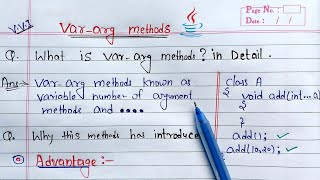 V.V.I
Var-arg methods
Java
Page No.
Date: / /
Q. What is var-arg methods? in Detail.
Ans→ Var-arg methods known as
variable number of argument
methods and ....
class A
{ void add(int...a)
{
}
add(); ✓
add(10,20); ✓
Q. Why this methods has introduce
Advantage :-